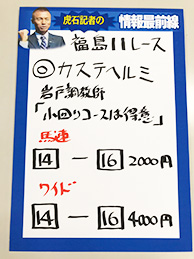 虎石記者の
情報最前線
福島11レース
◎カステヘルミ
岩戸調教師
「小回りコースは得意」
馬連
14 — 16 2000円
ワイド
14 — 16 4000円